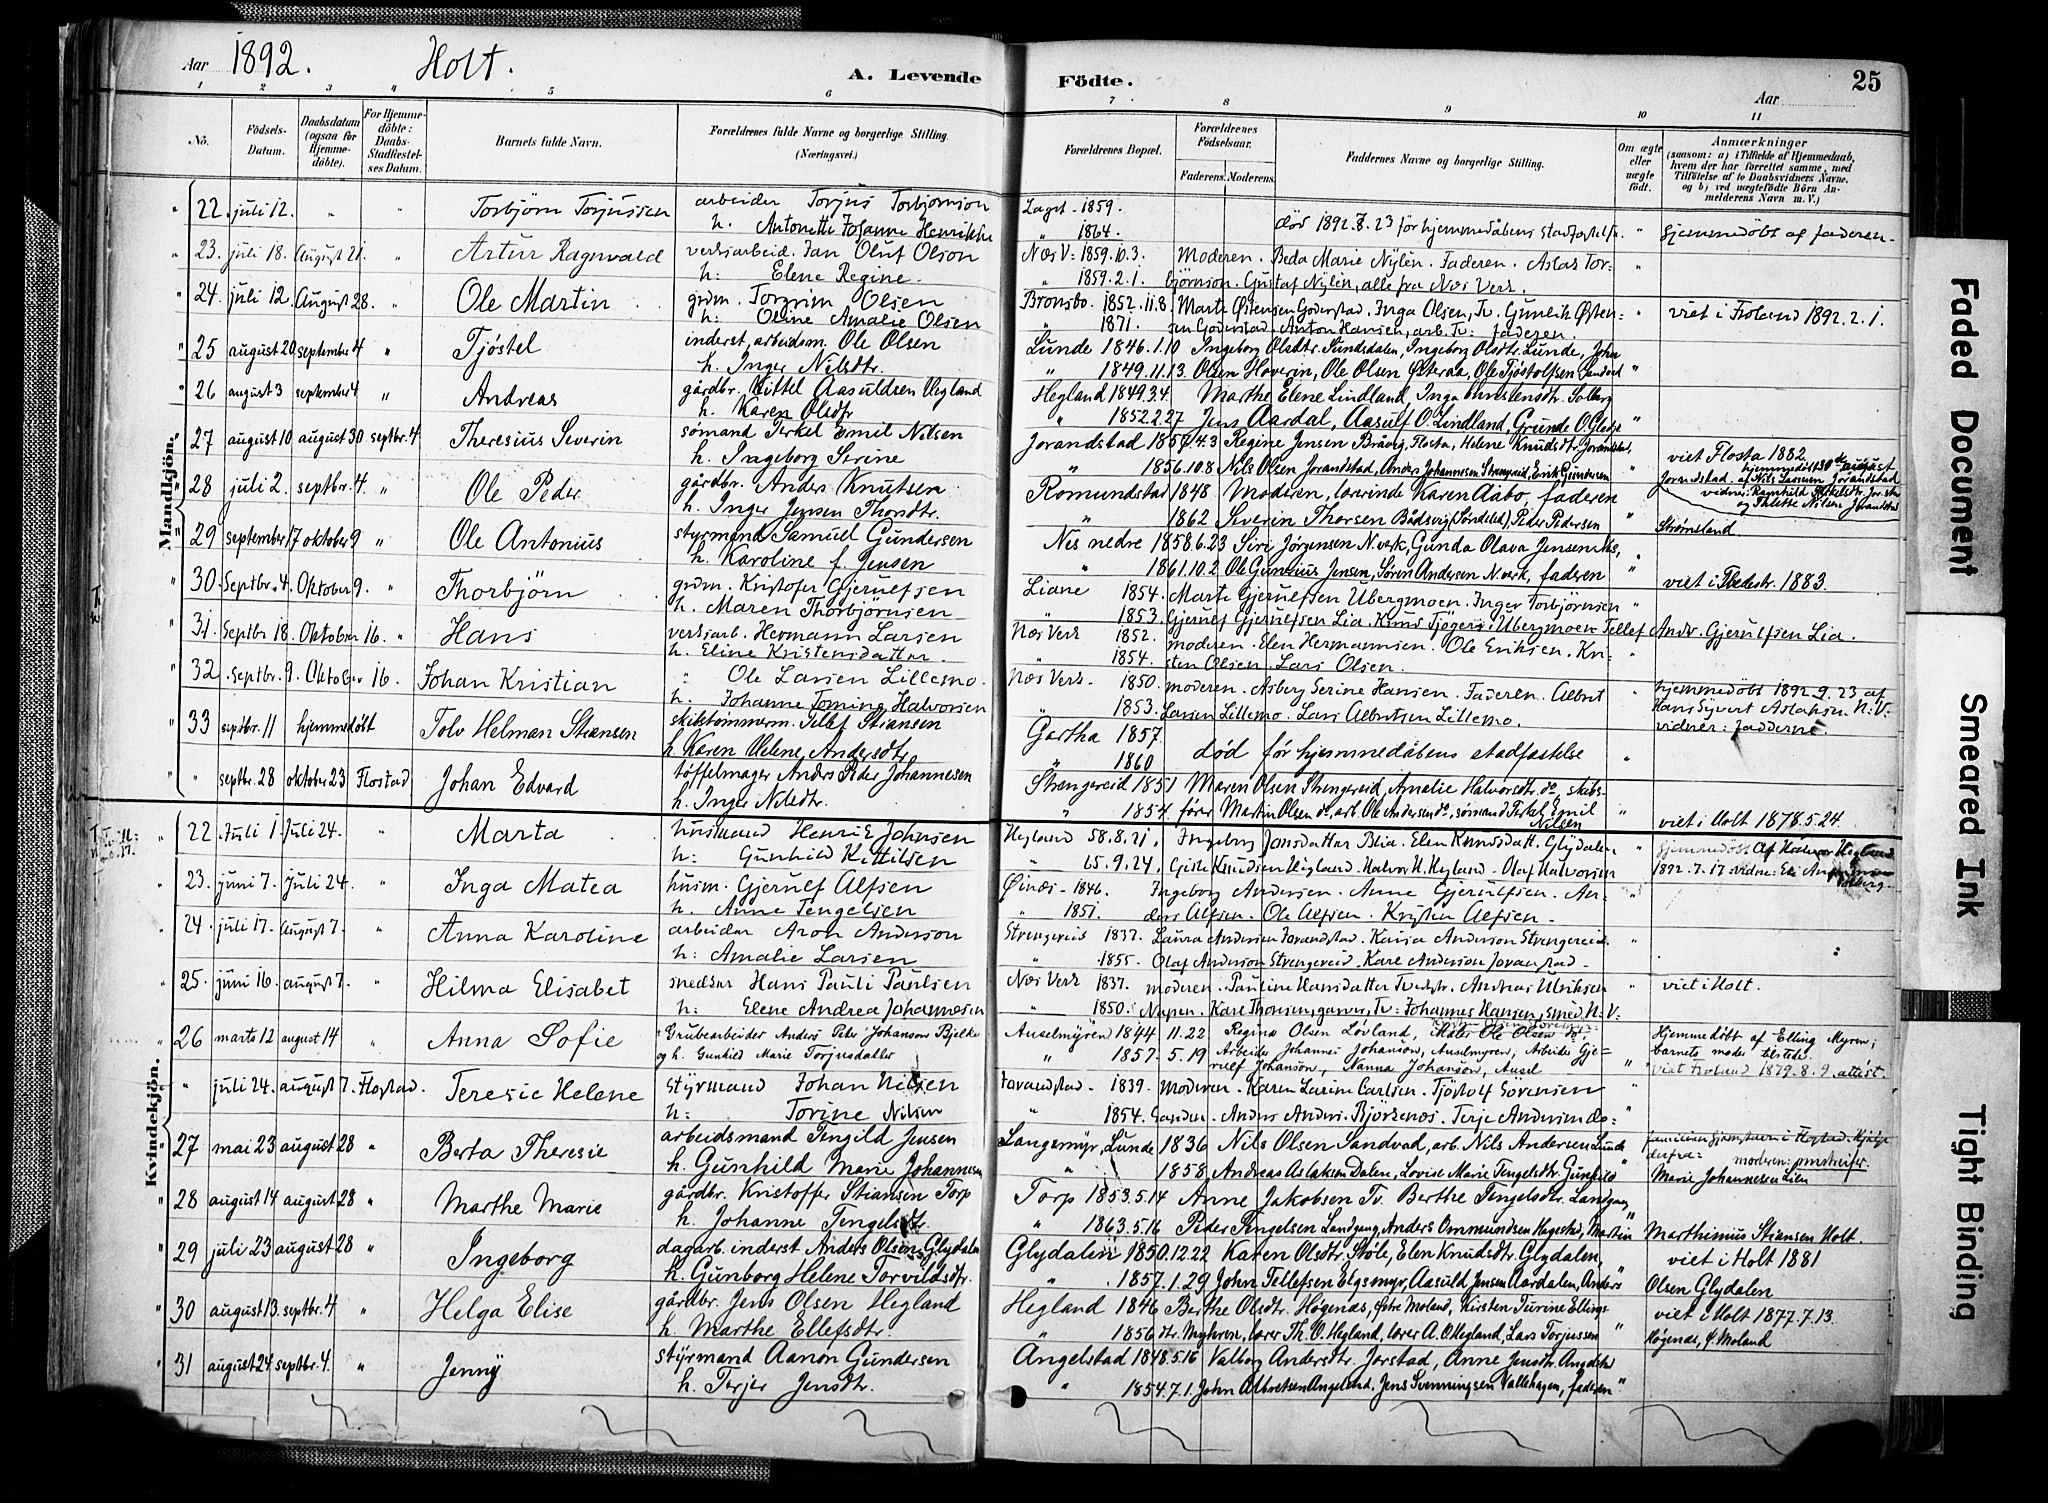 Aar 1892. Holt. A. Levende Födte. Aar 25
1 2 3 4 5 6 7 8 9 10 11
No. Födsels-Datum. Daabsdatum (ogsaa for Hjemmedöbte). For Hjemmedöbte: Daabs-Stadfæstelses Datum. Barnets fulde Navn. Forældrenes fulde Navne og borgerlige Stilling. (Næringsvei.) Forældrenes Bopæl. Forældrenes Födselsaar. Faderens. Moderens. Faddernes Navne og borgerlige Stilling. Om ægte eller uægte födt. Anmærkninger (saasom: a) i Tilfælde af Hjemmedaab, hvem der har forrettet samme, med Tilföielse af to Daabsvidners Navne. og b) ved uægtefödte Börn Anmelderens Navn m. V.)
Mandkjön.
22. juli 12. " " Torbjørn Torjussen arbeider Torjus Torbjørnson Laget 1859.
h. Antonette Johanne Henrikke " 1864. død 1892.7.23 før hjemmedåbens stadfæstelse. " hjemmedøbt af faderen
23. juli 18. August 21. " Artur Ragnvald verksarbeid. Jan Oluf Olson Næs V: 1859.10.3. Moderen. Beda Marie Nylén. Faderen. Aslak Tor- "
h: Elene Regine. 1859.2.1. bjørnson. Gustaf Nylén, alle fra Næs Verk.
24. juli 12. August 28. " Ole Martin grdm. Torgrim Olsen Bronsbo. 1852.11.8. Marte Østensen Goderstad. Inga Olsen, Tv. Gunleik Østen- " viet i Froland 1892.2.1.
h: Oline Amalie Olsen " 1871. sen Goderstad, Anton Hansen, arb. Tv: faderen
25 august 20 september 4 " Tjøstel inderst, arbeidsm. Ole Olsen Lunde 1846.1.10 Ingeborg Olsdtr. Sundsdalen, Ingeborg Olsdtr. Lunde, John
h. Inger Nilsdtr. " 1849.11.13. Olsen Hoverin, Ole Olsen Østerdæ, Ole Tjøstolfsen "
26 august 3 september 4 " Andreas gårdbr. Kittel Aasuldsen Hegland Hegland 1849.3.4. Marthe Elene Lindland, Inga Christensdtr. Solberg
h. Karen Olsdtr " 1852.2.27 Jens Aardal, Aasulf O. Lindland, Grunde O. "
27 august 10 august 30 septbr. 4 Theresius Severin sømand Terkel Emil Nilsen Jorandstad 1857.4.3 Regine Jensen Bråvig, Flosta, Helene Knudsdtr. Jorandstad,
h. Ingeborg Serine " 1856.10.8 Nils Olsen Jorandstad, Anders Johannesen Strengereid, Erik Gundersen " viet Flosta 1882
28 juli 2. septbr. 4. " Ole Peder gårdbr. Anders Knutsen Romundstad 1848 Moderen, lærerinde Karen Aabo, faderen hjemmedøbt 30te august Jorandstad. af Nils Larssen Jorandstad
h. Inger Jensen Thorsdtr. " 1862 Severin Thorsen Bådsvig (Søndeled), Peder Pedersen " Strømsland.
29 september 17 oktober 9 " Ole Antonius styrmand Samuel Gundersen Nes nedre 1858.6.23 Siri Jørgensen N.verk, Gunda Olava Jensen Næs,
h. Karoline f. Jensen " 1861.10.2 Ole Gunnius Jensen, Søren Andersen N.verk, faderen "
30. Septbr. 4. Oktober 9. " Thorbjörn grdm. Kristofer Gjerulfsen Liane 1854. Marte Gjerulfsen Ubergmoen. Inger Torbjørnsen " viet i Tvedestr. 1883.
h. Maren Thorbjørnsen " 1853. Gjerulf Gjerulfsen Lia. Knus Tjøgers. Ubergmoen Tellef Andr. Gjerulfsen Lia.
31. Septbr 18. Oktober 16. " Hans verksarb. Hermann Larsen Næs Verk 1852. moderen. Elen Hermannsen. Ole Eriksen. Kri- "
h. Eline Kristensdatter. " 1854. sten Olsen. Lars Olsen.
32 Septbr. 9. Oktober 16. Johan Kristian " Ole Larsen Lillemo. Næs Verk 1850. moderen. Asberg Serine Hansen. Faderen. Albrit " hjemmedøbt 1892.9.23 af
h. Johanne Tomine Halvorsen " 1853. Larsen Lillemo. Lars Albritsen Lillemo. Hans Syvert Aslaksen N.V. vidner: fadderne.
33 septbr. 11 hjemmedøbt Tolv Helman Stiansen skibtømmerm. Tellef Stiansen Gartha 1857
h. Karen Helene Andersdtr " 1860 død før hjemmedåbens stadfæstelse "
" septbr. 28 oktober 23 Flostad Johan Edvard tøffelmager Anders Peder Johannesen Strengereid 1851 Maren Olsen Strengereid, Amalie Halvorsdtr. do, skibs-
h. Inger Nilsdtr. " 1854. fører Martin Olsen do, arb. Ole Andersen do, sømand Terkel Emil Nilsen " viet i Holt 1878.5.24.
Kvindekjön.
22 Juli 1 Juli 24. " Marta husmand Henrik Johnsen Hegland 58.8.21. Ingeborg Jonsdatter Blia. Elen Knudsdatt. Glydalen " hjemmedøbt af Halvor Hegland
h: Gunhild Kittilsen " 65.9.24. Gisle Knudsen Hegland. Halvor H. Hegland. Olaf Halvorsen 1892.7.17
23. juni 7. Juli 24. " Inga Matea husm. Gjerulf Alfsen Øinæs 1846. Ingeborg Andersen. Anne Gjerulfsen. An- "
h. Anne Tengelsen " 1851. ders Alfsen. Ole Alfsen. Kristen Alfsen
24. juli 17. August 7. " Anna Karoline arbeider Aron Anderson Strengereid 1837. Laura Andersen Jorandstad. Kaisa Anderson Strengereid. "
h: Amalie Larsen " 1855. Olaf Anderson Strengereid. Karl Anderson Jorandstad
25. juni 16. august 7. " Hilma Elisabet snedker Hans Pauli Paulsen Næs Verk 1837. moderen. Pauline Hansdatter Tvedestr. Andreas Ulriksen " viet i Holt.
h: Elene Andrea Johannesen " 1850. Napen. Karl Thorsen, garver, Tv. Johannes Hansen, smed N.V:
26 marts 12 august 14 " Anna Sofie Grubearbeider Anders Peter Johanson Bjelke Anselmyren 1844 11.22 Regina Olsen Lövland, Ole Olson do. Hjemmedøbt af Elling Myren;
og h. Gunhild Marie Torjusdatter " 1857. 5.19 Arbeider Johannes Johanson, Anselmyren, Arbeider Gje- " barnets moder tilstede.
rulf Johanson, Nanna Johanson, Ansel viet Froland 1879.8.9. attest.
" juli 24. august 7. Flostad. Teresie Helene styrmand Johan Nilsen Jorandstad 1839. moderen. Karen Larine Carlsen. Tjøstolf Sørensen "
h: Torine Nilsen " 1854. Sanden. Anders Anders. Bjørkenæs. Terje Andersen do- "
27 mai 23 august 28 " Berta Theresie arbeidsmand Tengild Jensen Langemyr, Lunde 1836 Nils Olsen Sandvad, arb. Nils Andersen Lunde
h. Gunhild Marie Johannesen " 1858 Andreas Aslaksen Dalen, Lovise Marie Tengelsdtr, Gunhild " Marie Johannesen Lien
28 august 14 august 28 " Marthe Marie gårdbr. Kristoffer Stiansen Torp Torp 1853.5.14 Anne Jakobsen Tv. Berthe Tengelsdtr. Landgang,
h. Johanne Tengelsdt. " 1863.5.16 Peder Tengelsen Landgang, Anders Ommundsen Hagestad, Martin " Marthinius Stiansen Holt.
29 juli 23 august 28 " Ingeborg dagarb. inderst Anders Olsen Glydalen Glydalen 1850.12.22 Karen Olsdtr. Støle, Elen Knudsdtr. Glydalen, viet i Holt 1881
h. Gunborg Helene Torvildsdtr. " 1857.1.29 John Tellefsen Elgsmyr, Aasuld Jensen Aardalen, Anders " Olsen Glydalen
30 august 13. septbr. 4 " Helga Elise gårdbr. Jens Olsen Hegland Hegland 1846 Berthe Olsdtr. Högenæs, Østre Moland, Kirsten Jurine Ellings- viet i Holt 1877.7.13.
h. Marthe Ellefsdtr. " 1856 dtr. Myhren, lærer Th. O. Hegland, lærer A. O. Hegland, Lars Torjussen " Högenæs, Ø. Moland
31 august 24 septbr. 4. " Jenny styrmand Aanon Gundersen Angelstad 1848.5.16 Valborg Andersdtr. Jorstad, Anne Jensdtr. Angelstad
h. Terjer Jensdtr. " 1854.7.1. John Albretsen Angelstad, Jens Svenningsen Vallehagen, faderen "
Faded Document
Smeared Ink
Tight Binding